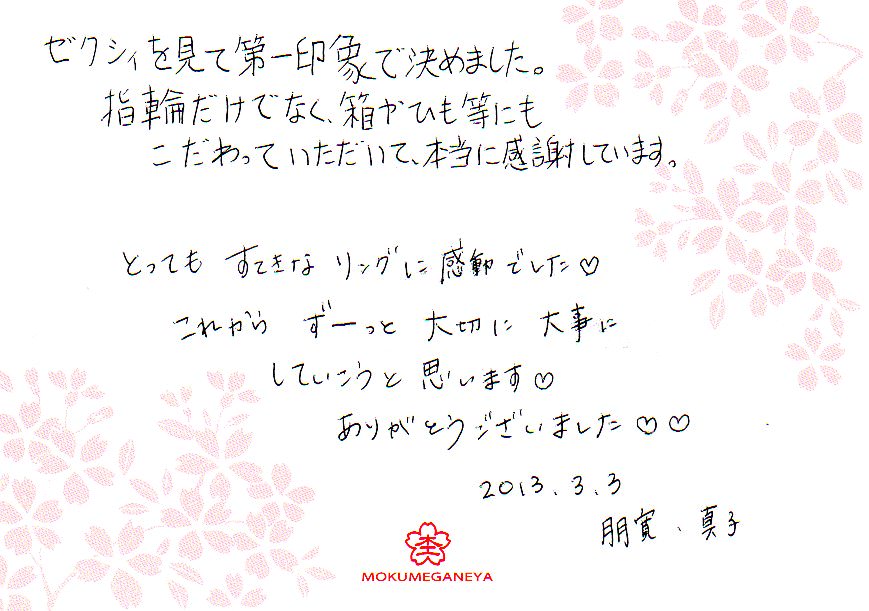 ゼクシィを見て第一印象で決めました。
指輪だけでなく、箱やひも等にも
こだわっていただいて、本当に感謝しています。
とっても すてきな リングに 感動でした♡
これから ずーっと 大切に 大事に
していこうと 思います♡
ありがとうございました♡♡
2013.3.3
朋寛、真子
杢
MOKUMEGANEYA